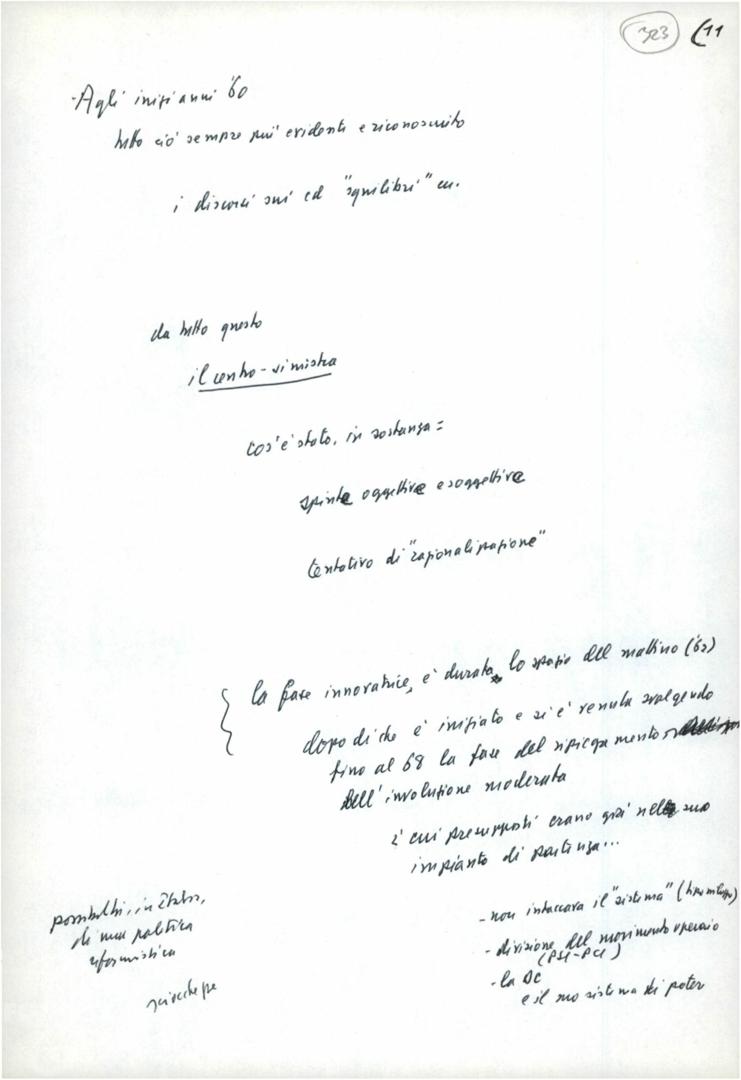 323 (11
- Agli inizi anni '60
tutto ciò sempre più evidente e riconosciuto
i discorsi sui cd "squilibri" ecc.
da tutto questo
il centro-sinistra
cos'è stato, in sostanza =
spinte oggettive e soggettive
tentativo di "razionalizzazione"
la fase innovatrice, è durata lo spazio del mattino ('62)
dopo di che è iniziato e si è venuta svolgendo
fino al 68 la fase del ripiegamento
dell'involuzione moderata
i cui presupposti erano già nel suo
impianto di partenza...
- non intaccava il "sistema" (tipo sviluppo)
- divisione del movimento operaio
(PSI-PCI)
- la DC
e il suo sistema di poter
possibilità, in Italia,
di una politica
riformistica